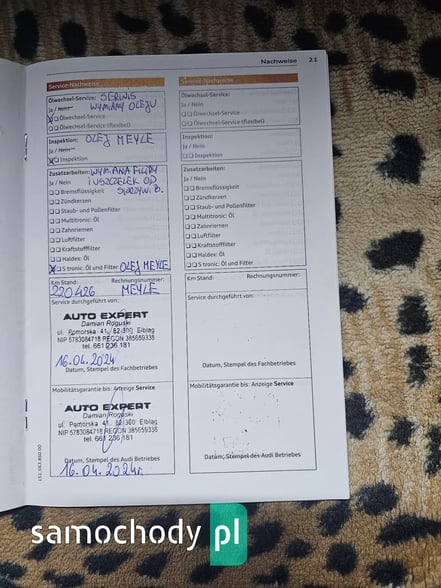 Nachweise 21
Service-Nachweise
Ölwechsel-Service: SERWIS
Ja / Nein WYMIANY OLEJU
Ölwechsel-Service
Ölwechsel-Service (flexibel)
Inspektion: OLEJ MEYLE
Ja / Nein
Inspektion
Zusatzarbeiten: WYMIANA FILTRY
Ja / Nein I USZCZELEK OD
Bremsflüssigkeit
Zündkerzen
Staub- und Pollenfilter
Multitronic: Öl
Zahnriemen
Luftfilter
Kraftstofffilter
Haldex: Öl
S tronic: Öl und Filter OLEJ MEYLE
Km Stand: Rechnungsnummer:
220426 MEYLE
Service durchgeführt von:
AUTO EXPERT
Damian Roguski
ul. Pomorska 41, 82-300 Elbląg
NIP 5783084718 REGON 385659338
tel. 661 236 181
16.04.2024
Datum, Stempel des Fachbetriebes
Mobilitätsgarantie bis: Anzeige Service
AUTO EXPERT
Damian Roguski
ul. Pomorska 41, 82-300 Elbląg
NIP 5783084718 REGON 385659338
tel. 661 236 181
Datum, Stempel des Audi Betriebes
16.04.2024r.
Service-Nachweise
Ölwechsel-Service:
Ja / Nein
Ölwechsel-Service
Ölwechsel-Service (flexibel)
Inspektion:
Ja / Nein
Inspektion
Zusatzarbeiten:
Ja / Nein
Bremsflüssigkeit
Zündkerzen
Staub- und Pollenfilter
Multitronic: Öl
Zahnriemen
Luftfilter
Kraftstofffilter
Haldex: Öl
S tronic: Öl und Filter
Km Stand: Rechnungsnummer:
Service durchgeführt von:
Datum, Stempel des Fachbetriebes
Mobilitätsgarantie bis: Anzeige Service
Datum, Stempel des Audi Betriebes
samochody pl